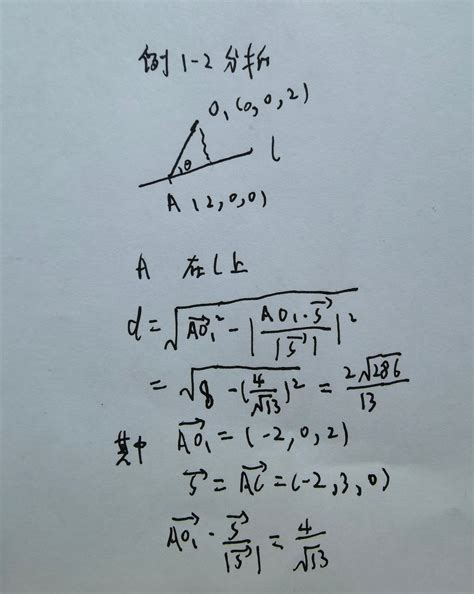 例 1-2 分析
O₁(0,0,2)
θ
l
A(2,0,0)
A 在 l 上
d = √(\vec{AO₁}² - |\frac{\vec{AO₁}·\vec{s}}{|\vec{s}|}|²)
= √(8 - (\frac{4}{√13})²) = \frac{2√286}{13}
其中 \vec{AO₁} = (-2,0,2)
\vec{s} = \vec{AC} = (-2,3,0)
\vec{AO₁}·\frac{\vec{s}}{|\vec{s}|} = \frac{4}{√13}